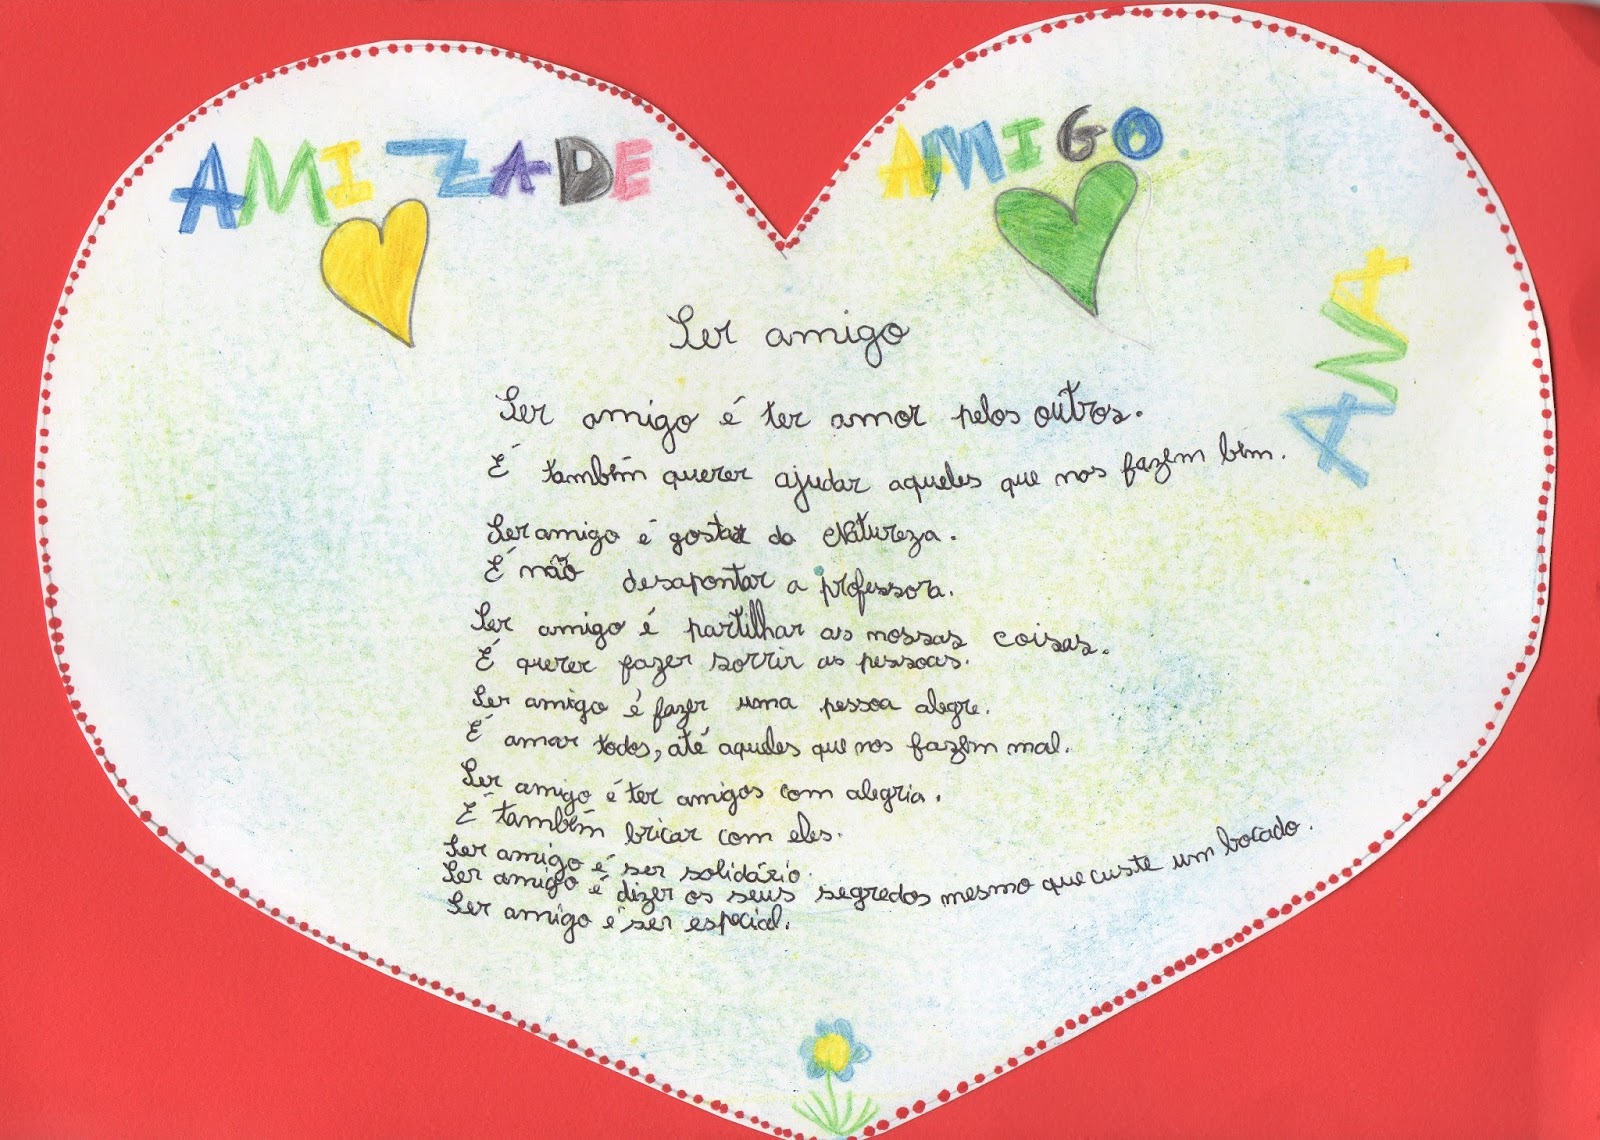 AMIZADE
AMIGO
ANA
Ser amigo
Ser amigo é ter amor pelos outros.
É também querer ajudar aqueles que nos fazem bem.
Ser amigo é gostar da Natureza.
É não desapontar a professora.
Ser amigo é partilhar as nossas coisas.
É querer fazer sorrir as pessoas.
Ser amigo é fazer uma pessoa alegre.
É amar todos, até aqueles que nos fazem mal.
Ser amigo é ter amigos com alegria.
É também bricar com eles.
Ser amigo é ser solidário.
Ser amigo é dizer os seus segredos mesmo que custe um bocado.
Ser amigo é ser especial.